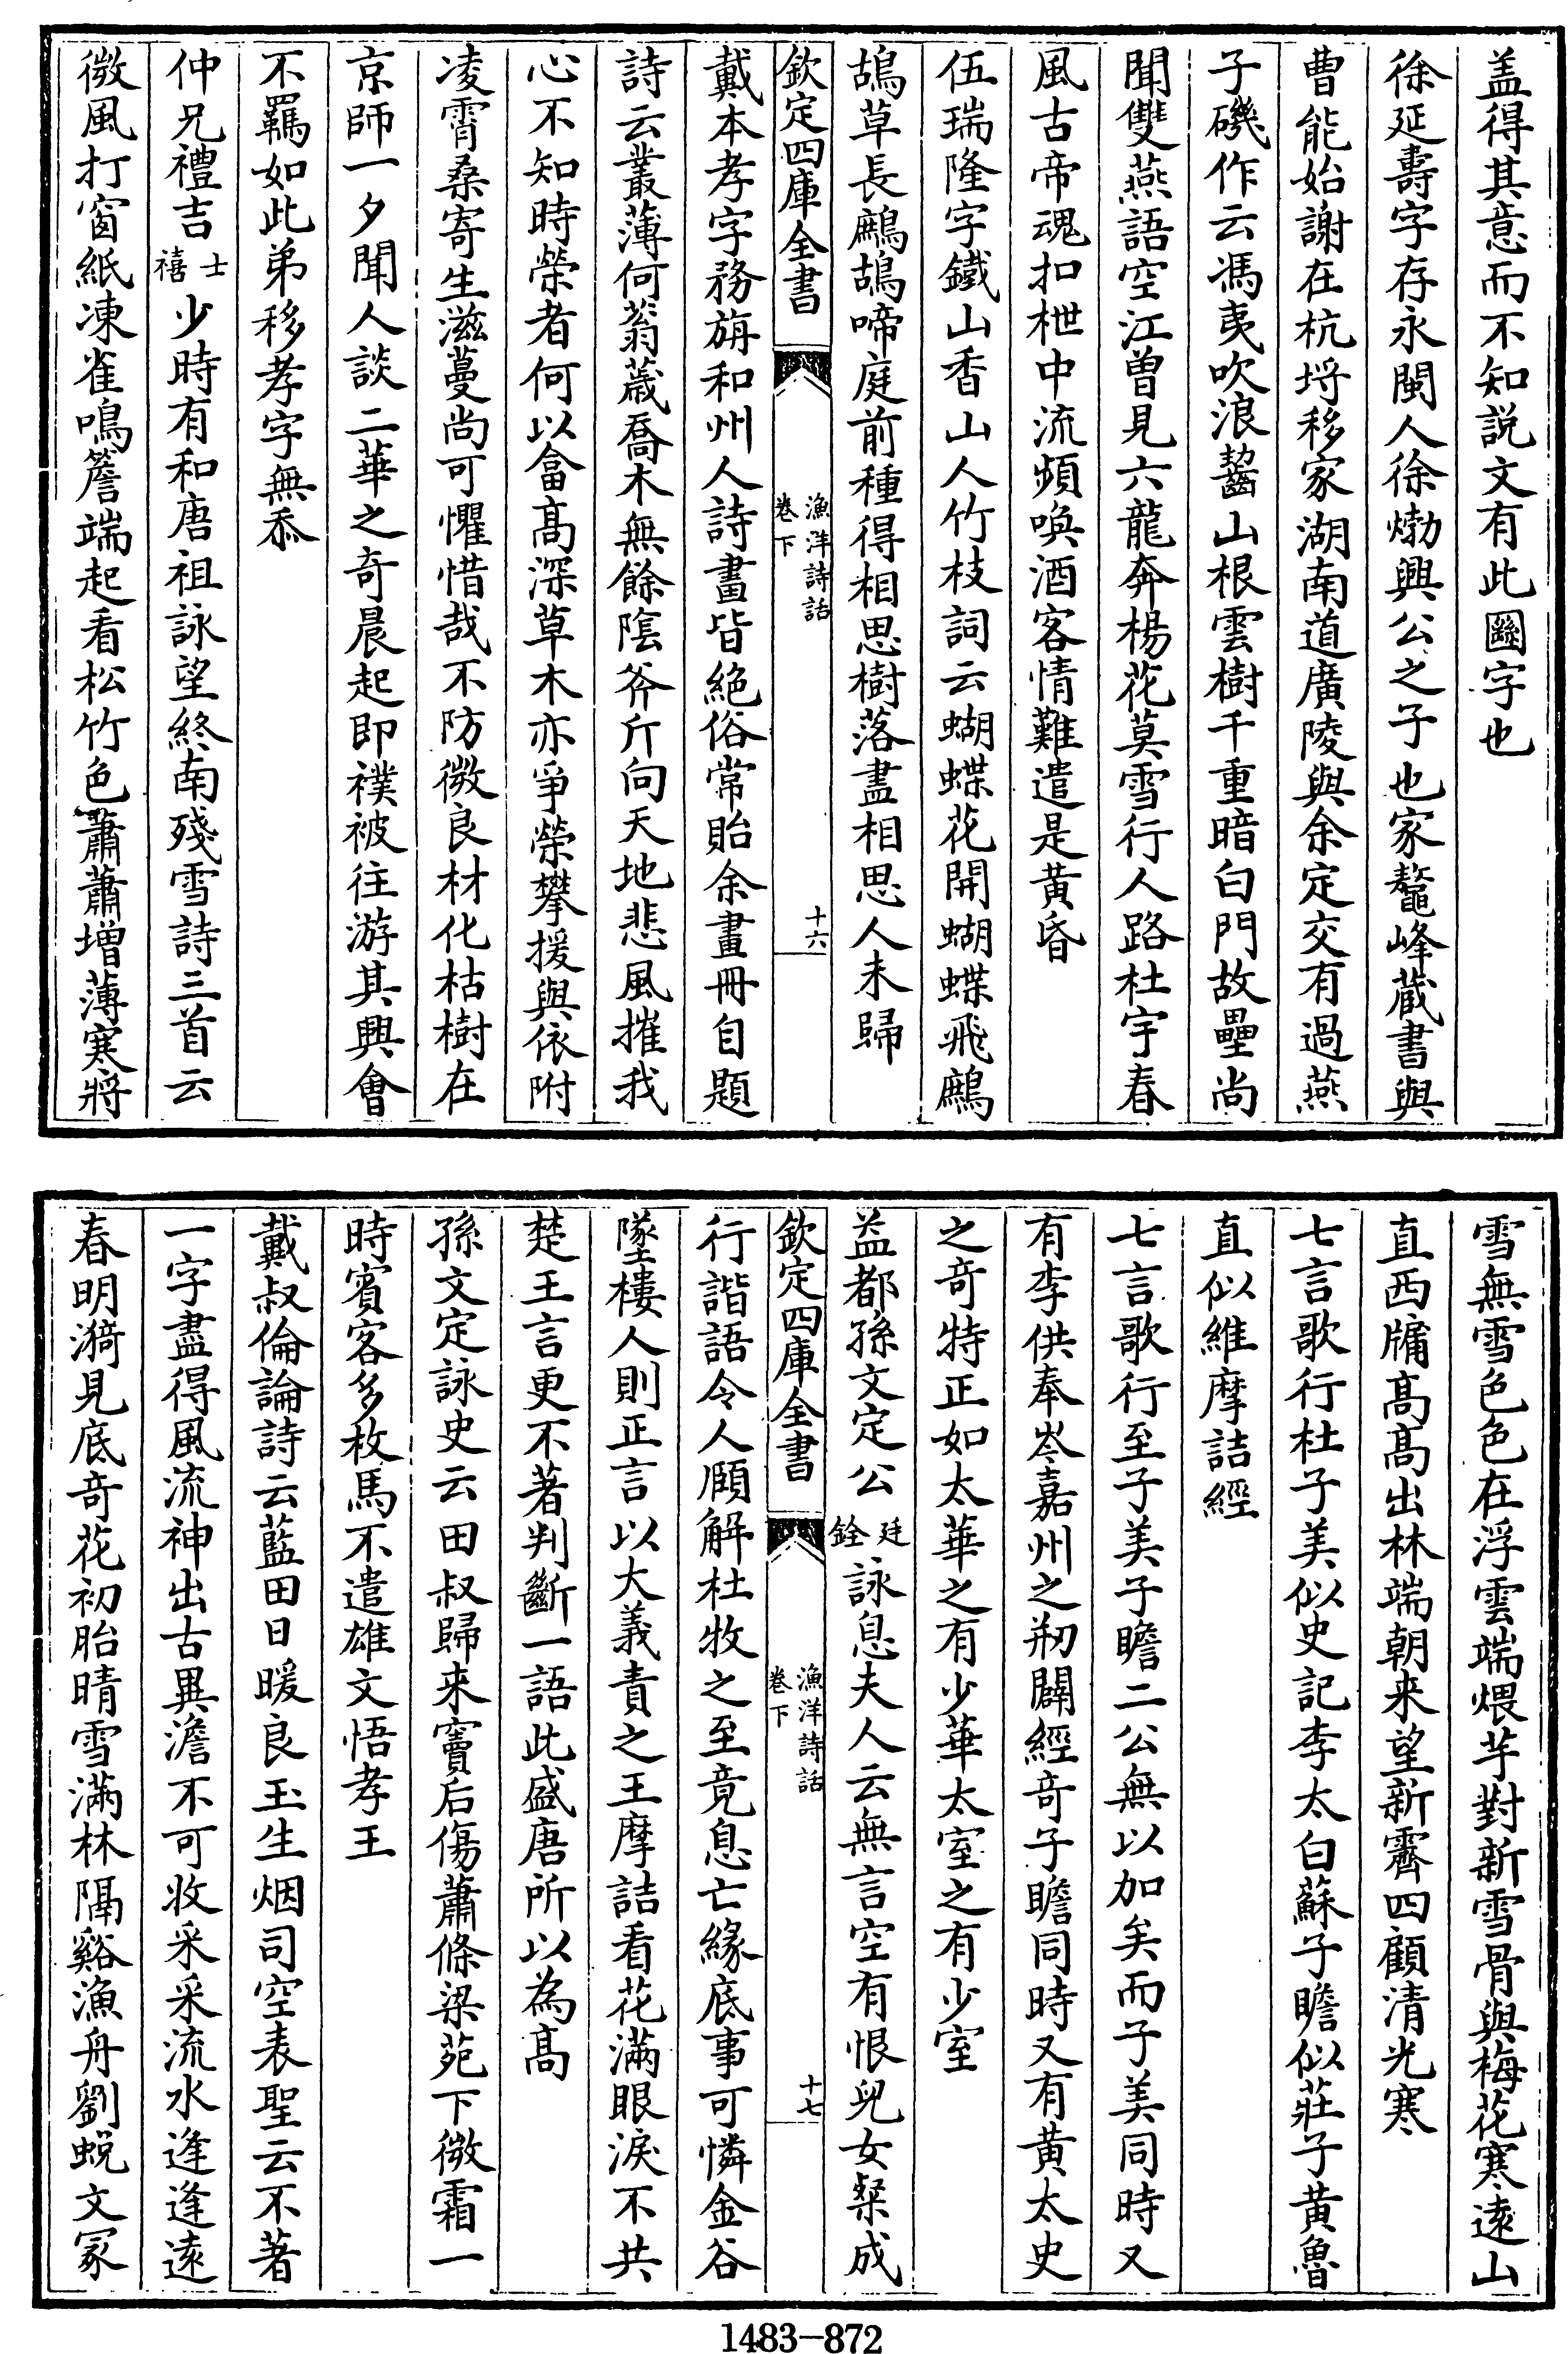 盖得其意而不知説文有此圝字也
徐延壽字存永閩人徐㶿興公之子也家鼇峰藏書與
曹能始謝在杭埒移家湖南道廣陵與余定交有過燕
子磯作云馮夷吹浪齧山根雲樹千重暗白門故壘尚
聞雙燕語空江曽見六龍奔楊花莫雪行人路杜宇春
風古帝魂扣枻中流頻喚酒客情難遣是黄昏
伍瑞隆字鐵山香山人竹枝詞云蝴蝶花開蝴蝶飛鷓
鴣草長鷓鴣啼庭前種得相思樹落盡相思人未歸
欽定四庫全書
漁洋詩話
卷下
十六
戴本孝字務旃和州人詩畫皆絶俗常貽余畫冊自題
詩云叢薄何蓊薉喬木無餘陰斧斤向天地悲風摧我
心不知時榮者何以畣髙深草木亦爭榮攀援與依附
凌霄桑寄生滋蔓尚可懼惜哉不防微良材化枯樹在
京師一夕聞人談二華之奇晨起即襆被往游其興㑹
不羈如此弟移孝字無忝
仲兄禮吉士禧少時有和唐祖詠望終南殘雪詩三首云
微風打窗紙凍雀鳴簷端起看松竹色蕭蕭增薄寒將
雪無雪色色在浮雲端煨芋對新雪骨與梅花寒遠山
直西牖髙髙出林端朝来望新霽四顧清光寒
七言歌行杜子美似史記李太白蘇子瞻似莊子黄魯
直似維摩詰經
七言歌行至子美子瞻二公無以加矣而子美同時又
有李供奉岑嘉州之剏闢經奇子瞻同時又有黄太史
之奇特正如太華之有少華太室之有少室
益都孫文定公廷銓詠息夫人云無言空有恨兒女粲成
欽定四庫全書
漁洋詩話
卷下
十七
行諧語令人頤解杜牧之至竟息亡緣底事可憐金谷
墜樓人則正言以大義責之王摩詰看花滿眼淚不共
楚王言更不著判斷一語此盛唐所以為髙
孫文定詠史云田叔歸来竇后傷蕭條梁苑下微霜一
時賓客多枚馬不遣雄文悟孝王
戴叔倫論詩云藍田日暖良玉生烟司空表聖云不著
一字盡得風流神出古異澹不可收采采流水逢逢遠
春明漪見底奇花初胎晴雪滿林隔谿漁舟劉蜕文冢
1483-872